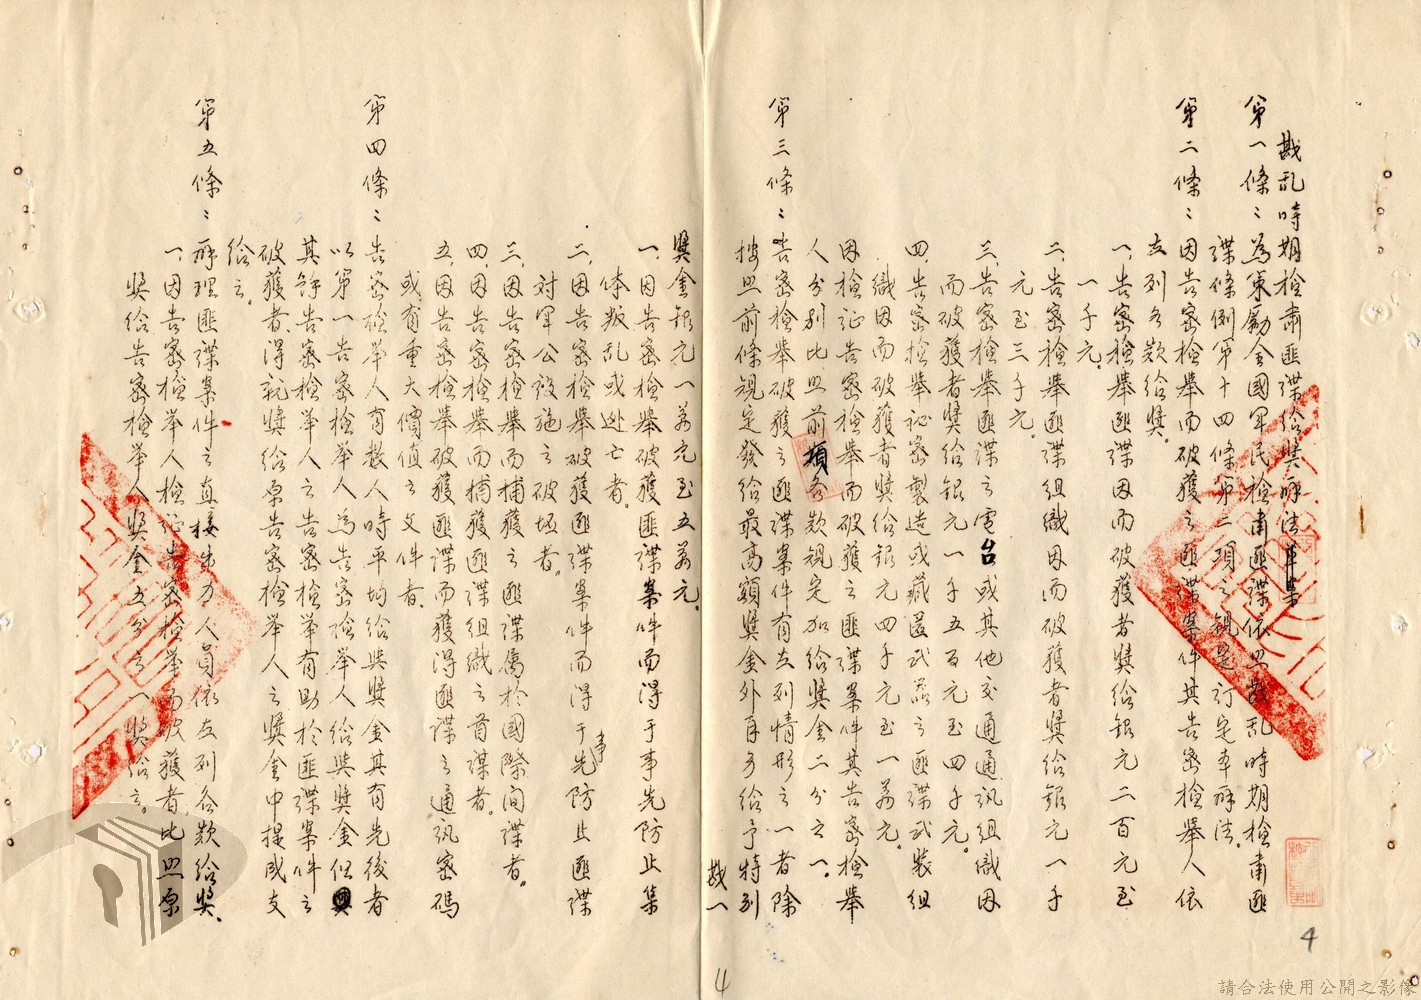 戡乱時期檢肅匪諜給獎辦法草案
第一條：為策勵全國軍民檢肅匪諜依照戡乱時期檢肅匪
諜條例第十四條第二項之規定訂定本辦法。
第二條：因告密檢舉而破獲之匪諜案件其告密檢舉人依
左列各款給獎。
一、告密檢舉匪諜因而破獲者獎給銀元二百元至
一千元。
二、告密檢舉匪諜組織因而破獲者獎給銀元一千
元至三千元。
三、告密檢舉匪諜之電台或其他交通通訊組織因
而破獲者獎給銀元一千五百元至四千元。
四、告密檢舉祕密製造或藏匿武器之匪諜武裝組
織因而破獲者獎給銀元四千元至一萬元。
因檢証告密檢舉而破獲之匪諜案件其告密檢舉
人分别比照前項各款規定加給獎金二分之一。
第三條：告密檢舉破獲之匪諜案件有左列情形之一者除
按照前條規定發給最高額獎金外再多給予特别
戡一
獎金銀元一萬元至五萬元。
一、因告密檢舉破獲匪諜案件而得于事先防止集
体叛乱或逃亡者。
二、因告密檢舉破獲匪諜案件而得于事先防止匪諜
對軍公設施之破壞者。
三、因告密檢舉而捕獲之匪諜屬於國際间諜者。
四、因告密檢舉而捕獲匪諜組織之首謀者。
五、因告密檢舉破獲匪諜而獲得匪諜之通訊密碼
或有重大價值之文件者。
第四條：告密檢举人有数人時平均給與獎金其有先後者
以第一告密檢举人為告密檢举人給與獎金但
其餘告密檢举人之告密檢举有助於匪諜案件之
破獲者、得就獎給原告密檢举人之獎金中提成支
給之。
第五條：辦理匪諜案件之直接出力人員依左列各款給獎、
一、因告密檢举人檢証告密檢举而破獲者、比照原
獎給告密檢举人獎金五分之一獎給之。
4
4
請合法使用公開之影像